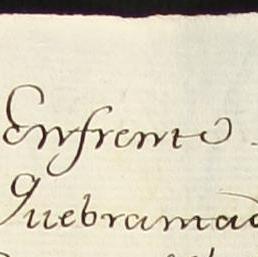 Enfrente
Quebramad